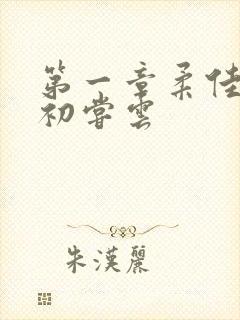 第一章柔佳
初尝雲
朱漢麗